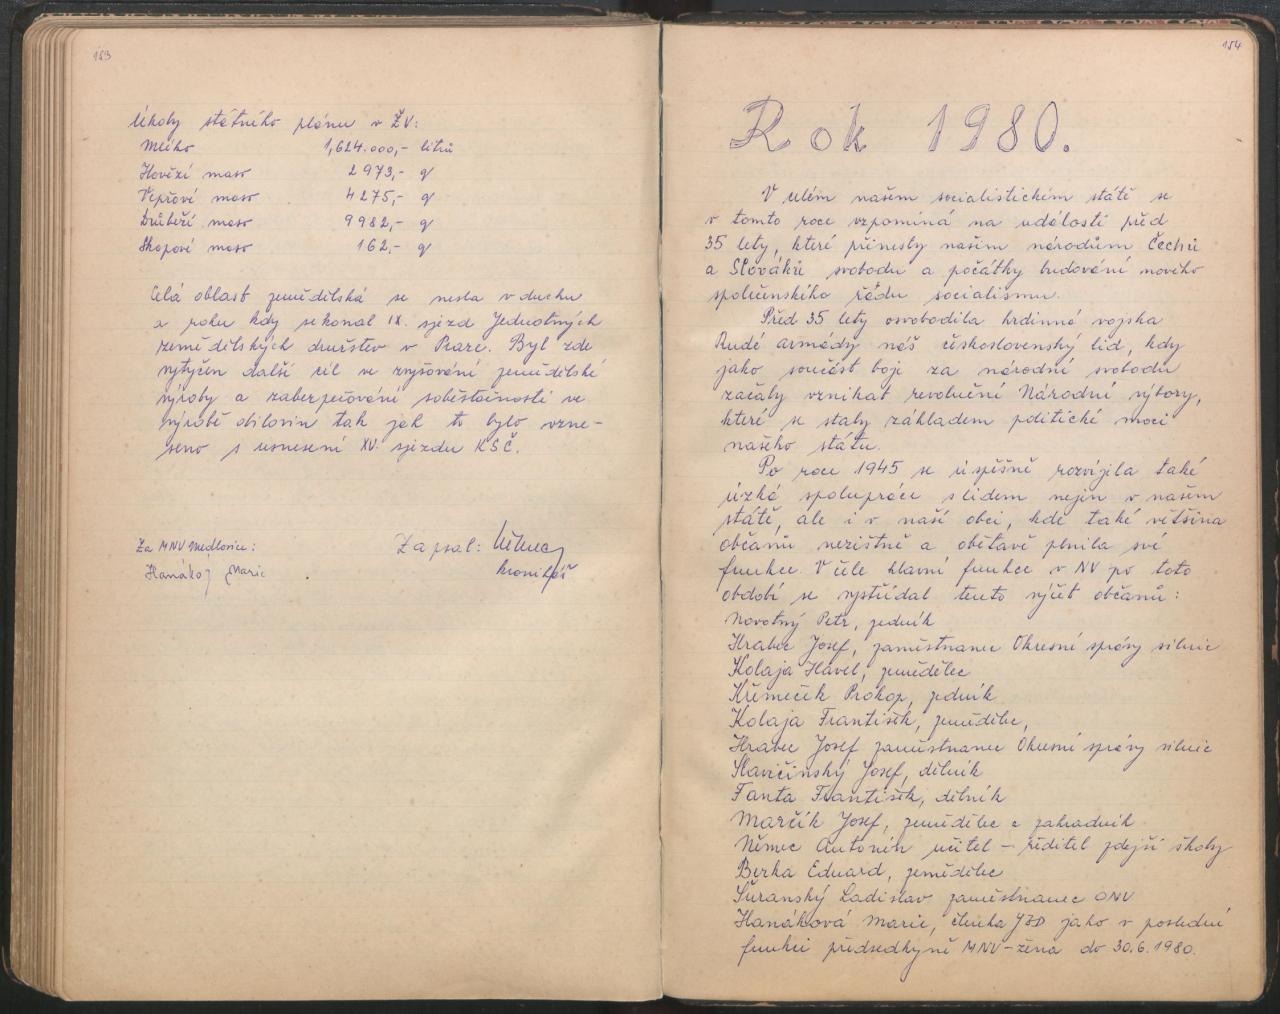 153
Úkoly státního plánu v ŽV:
Mléko 1,624.000,- litrů
Hovězí maso 2973,- q
Vepřové maso 4275,- q
Drůbeží maso 9982,- q
Skopové maso 162,- q
Celá oblast zemědělská se nesla v duchu
a roku kdy se konal IX. sjezd Jednotných
zemědělských družstev v Praze. Byl zde
vytyčen další cíl ve zvyšování zemědělské
výroby a zabezpečování soběstačnosti ve
výrobě obilovin tak jak to bylo vzne-
seno s usnesení XV. sjezdu KSČ.
Za MNV Medlovice: Zapsal: Němec
Hanáková Marie kronikář
154
Rok 1980.
V celém našem socialistickém státě se
v tomto roce vzpomíná na události před
35 lety, které přinesly našim národům Čechů
a Slováků svobodu a počátky budování nového
společenského řádu socialismu.
Před 35 lety osvobodila hrdinná vojska
Rudé armády náš československý lid, kdy
jako součást boje za národní svobodu
začaly vznikat revoluční Národní výbory,
které se staly základem politické moci
našeho státu.
Po roce 1945 se úspěšně rozvíjela také
úzká spolupráce s lidem nejen v našem
státě, ale i v naší obci, kde také většina
občanů nezištně a obětavě plnila své
funkce. V čele hlavní funkce v NV po toto
období se vystřídal tento výčet občanů:
Novotný Petr, zedník
Hrabec Josef, zaměstnanec Okresní správy silnic
Kolaja Havel, zemědělec
Křemeček Prokop, zedník
Kolaja František, zemědělec,
Hrabec Josef zaměstnanec Okresní správy silnic
Slavičinský Josef, dělník
Fanta František, dělník
Marčík Josef, zemědělec a zahradník
Němec Antonín učitel – ředitel zdejší školy
Berka Eduard, zemědělec
Šuranský Ladislav zaměstnanec ONV
Hanáková Marie, členka JZD jako v poslední
funkci předsedkyně MNV – žena do 30.6.1980.